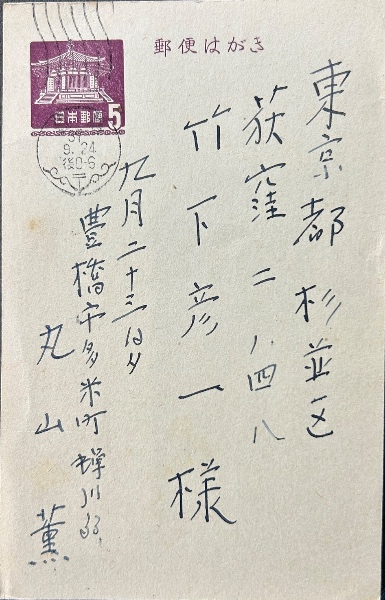 郵便はがき
日本郵便
5
9.24
后0-6
東京都杉並区
荻窪二ノ四八
竹下彦一様
九月二十三日夕
豊橋市多米町蝉川
丸山薫